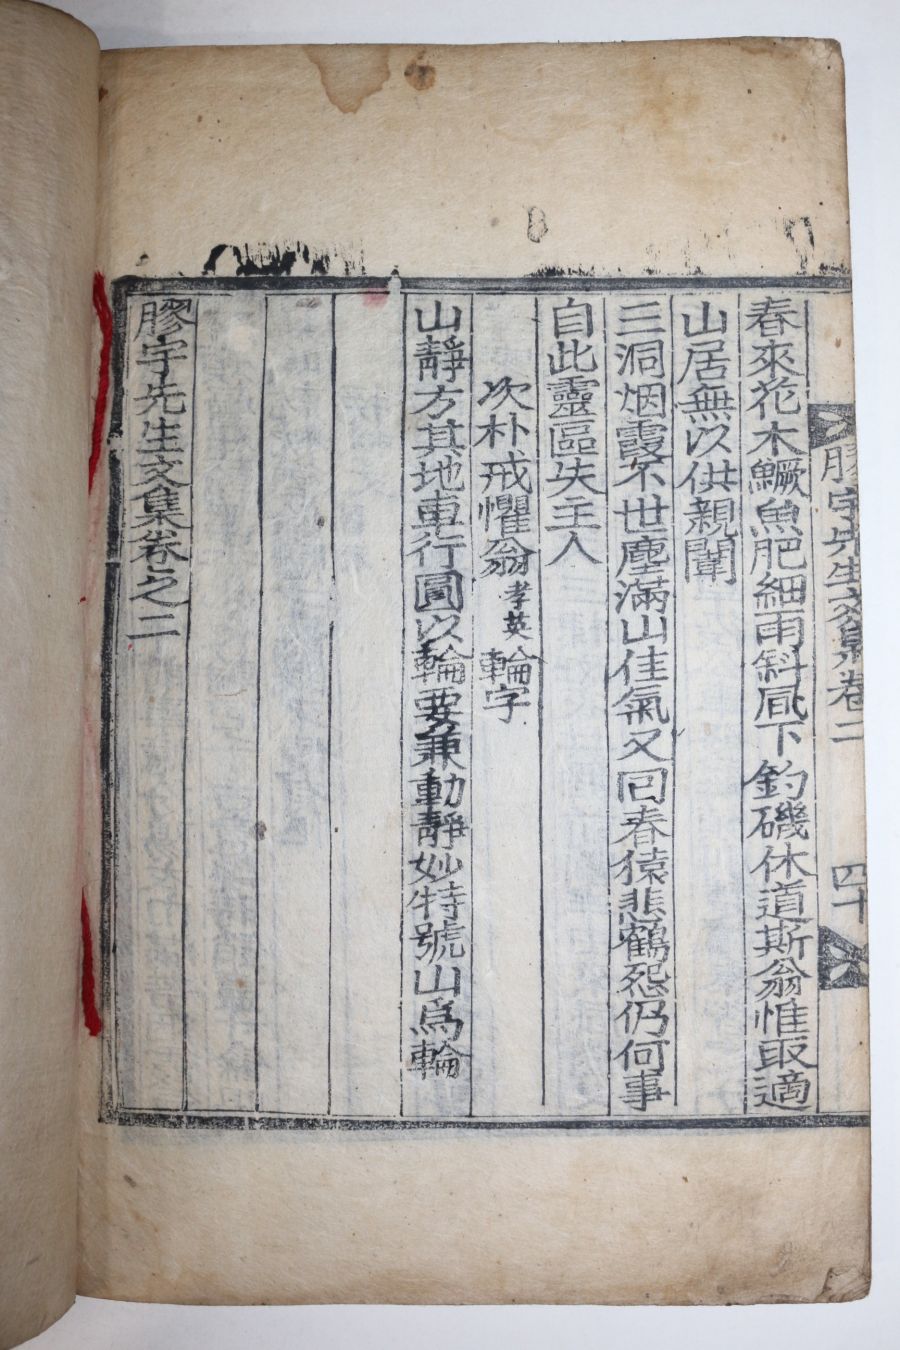 膠宇先生文集卷二
四十
春來花木鱖魚肥細雨斜風下釣磯休道斯翁惟取適
山居無以供親闈
三洞烟霞不世塵滿山佳氣又回春猿悲鶴怨仍何事
自此靈區失主人
次朴戒懼翁孝英輪字
山靜方其地車行圓以輪要兼動靜妙特號山爲輪
膠宇先生文集卷之二